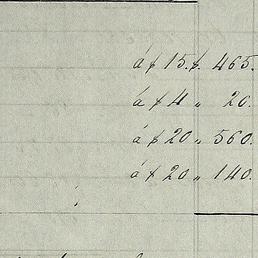 á $ 15. $. 465.
á $ 4 " 20.
á $ 20 " 560.
á $ 20 " 140.